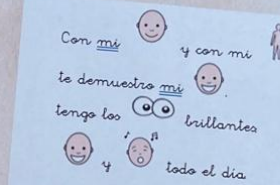 Con mi y con mi
te demuestro mi .
tengo los brillantes
y todo el día